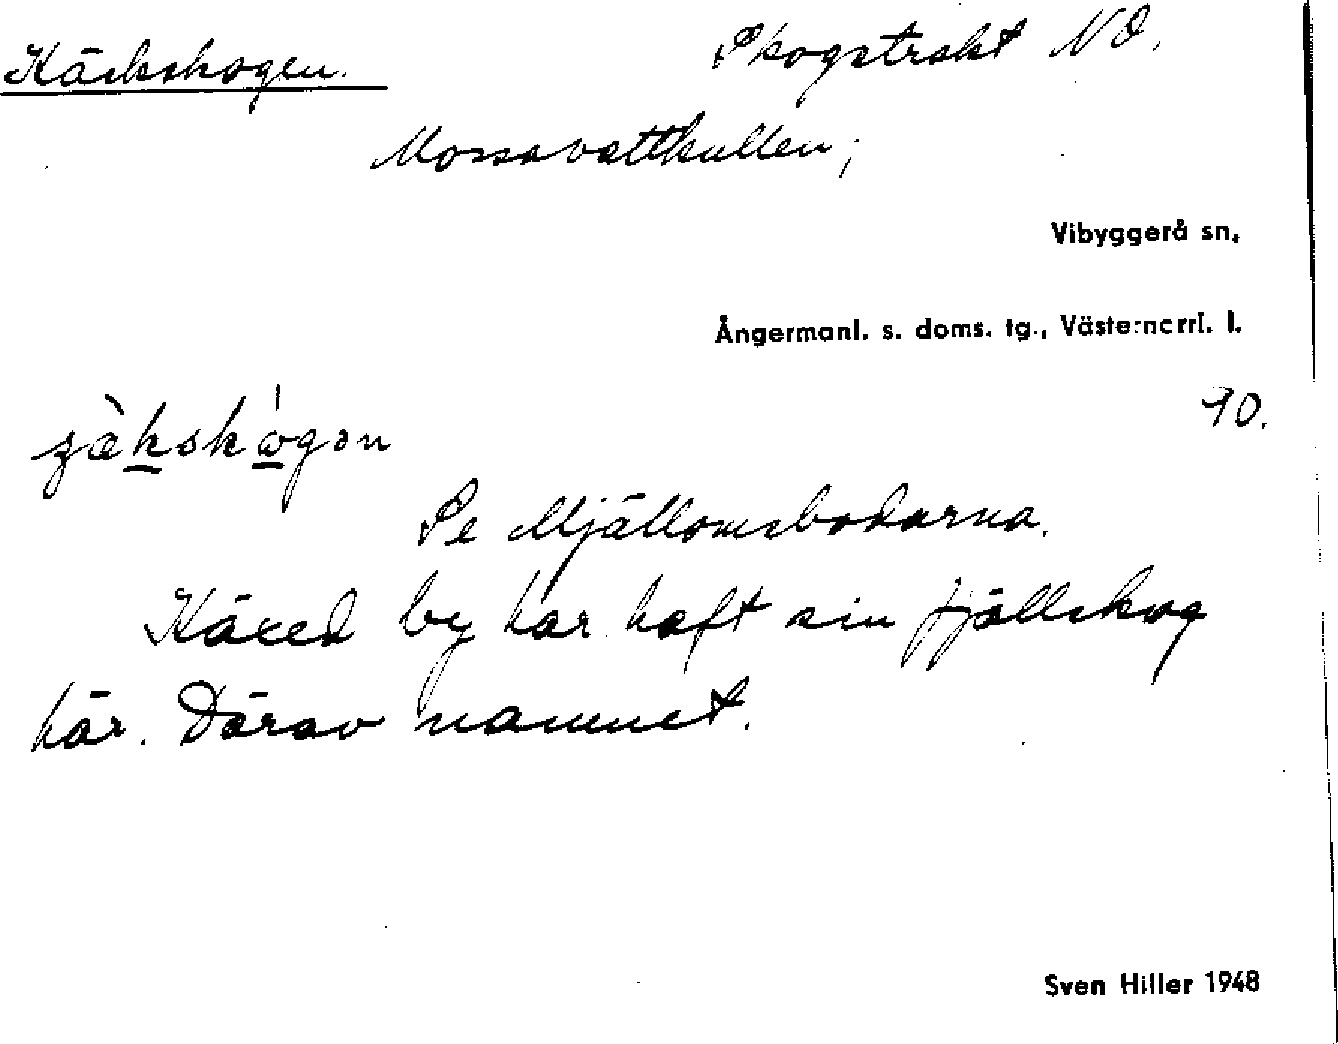 Käckskogen. Skogstrakt NO.
Mossavattkullen;
Vibyggerå sn,
Ångermanl. s. doms. tg., Västernorrl. l.
90.
Se Mjällomsbodarna.
Käxed by har haft sin fjällskog
här. Därav namnet.
Sven Hiller 1948